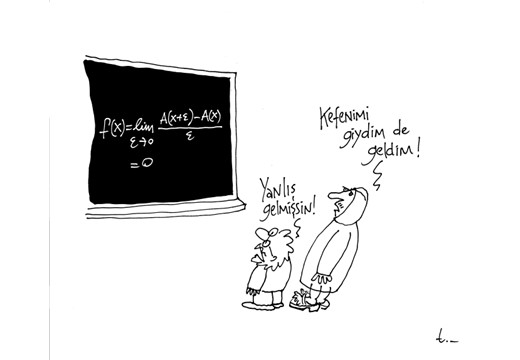 f(x)=lim A(x+ε)-A(x)
ε→0 ε
=0
Kefenimi
giydim de
geldim!
Yanlış
gelmişsin!
t._